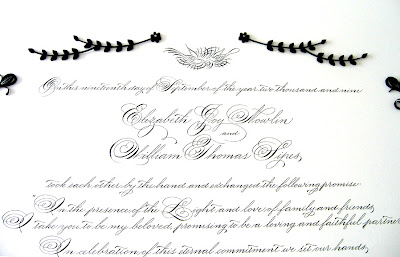 On this nineteenth day of September of the year two thousand and nine
Elizabeth Joy Nowlin
and
William Thomas Sires,
took each other by the hand and exchanged the following promise
"In the presence of the Light and love of family and friends,
I take you to be my beloved, promising to be a loving and faithful partner
In celebration of this eternal commitment we set our hands,